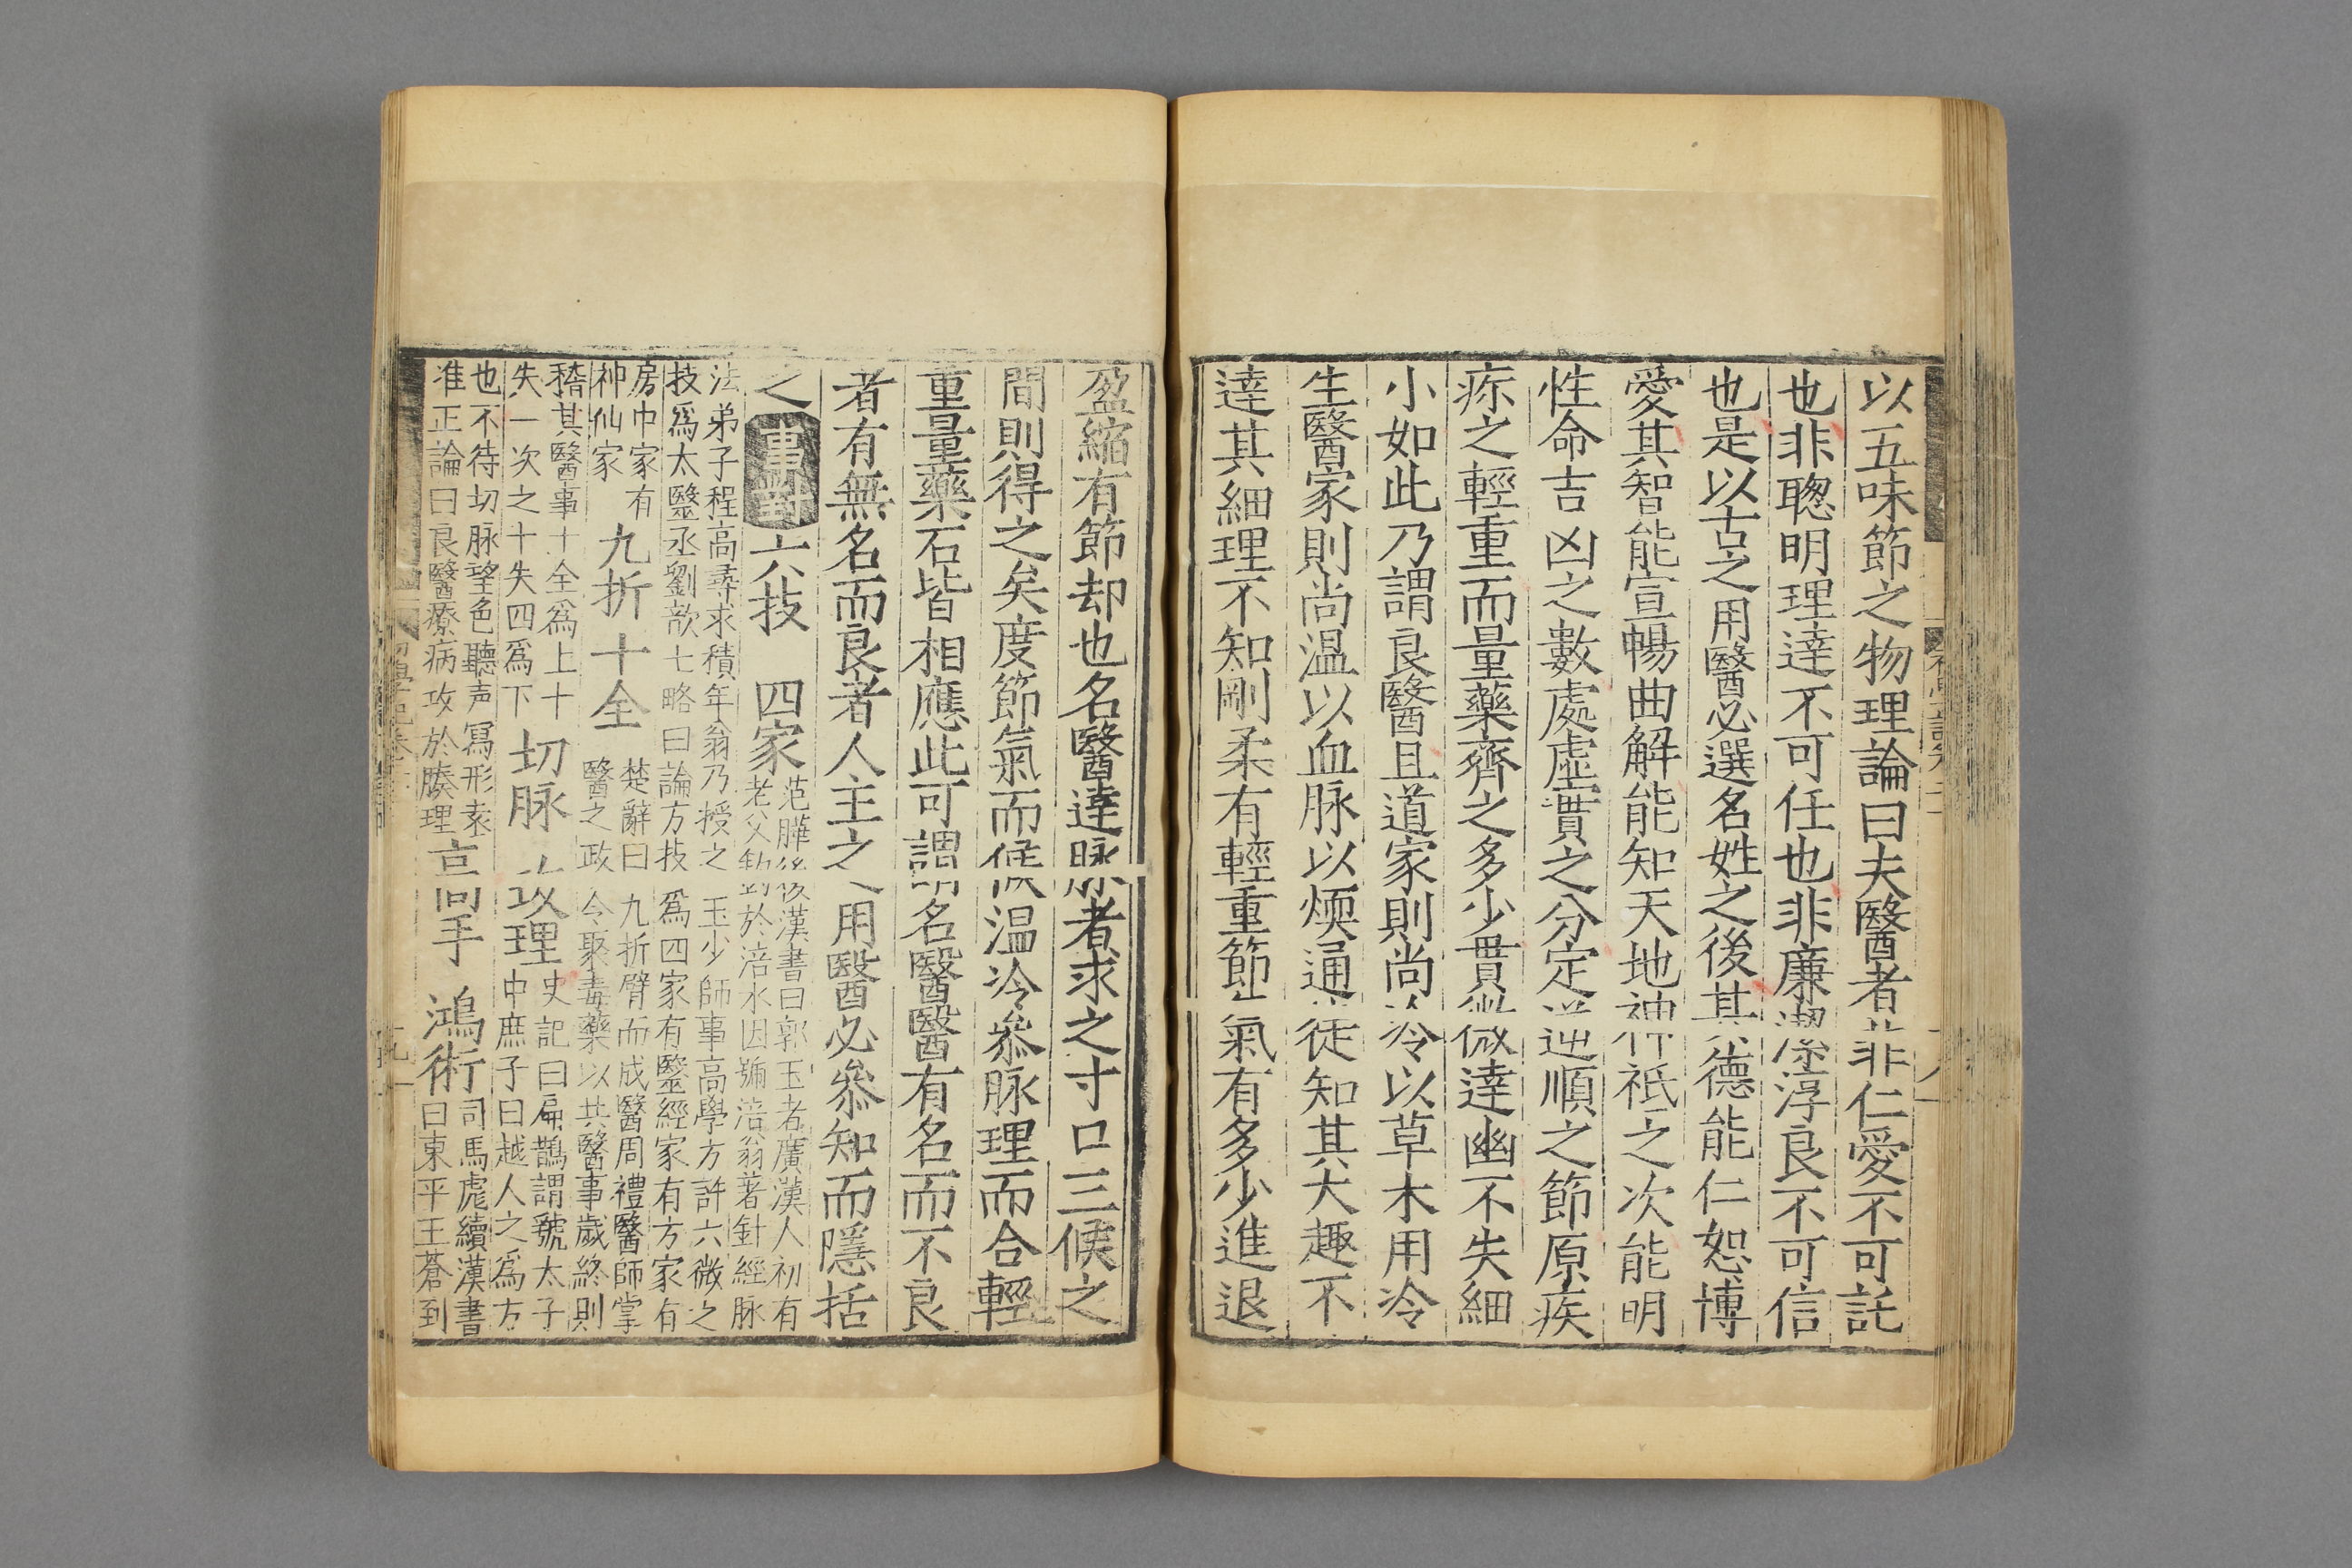 以五味節之物理論曰夫醫者非仁愛不可託
也非聰明理達不可任也非廉潔淳良不可信
也是以古之用醫必選名姓之後其德能仁恕博
愛其智能宣暢曲解能知天地神祇之次能明
性命吉凶之數處虛實之分定逆順之節原疾
疹之輕重而量藥齊之多少貫微達幽不失細
小如此乃謂良醫且道家則尚冷以草木用冷
生醫家則尚温以血脉以煗通徒知其大趣不
達其細理不知剛柔有輕重節氣有多少進退
盈縮有節却也名醫達脉者求之寸口三候之
間則得之矣度節氣而候温冷叅脉理而合輕
重量藥石皆相應此可謂名醫醫有名而不良
者有無名而良者人主之用醫必叅知而隱括
之事對六技 四家范曄後漢書曰郭玉者廣漢人初有
老父釣於涪水因號涪翁著針經脉
法弟子程高尋求積年翁乃授之玉少師事高學方許六微之
技爲太醫丞劉歆七略曰論方技爲四家有醫經家有方家有
房中家有
神仙家九折十全楚辭曰九折臂而成醫周禮醫師掌
醫之政令聚毒藥以共醫事歲終則
稽其醫事十全爲上十
失一次之十失四爲下切脉 攻理史記曰扁鵲謂虢太子
中庶子曰越人之爲方
也不待切脉望色聽声冩形袁
准正論曰良醫療病攻於腠理高手 鴻術司馬彪續漢書
曰東平王蒼到